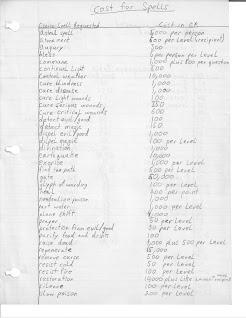 Cost for Spells
Cleric Spell Requested Cost in GP
Astral spell 5,000 per person
Atonement 500 per Level (recipient)
Augury 300
Bless 5 per person per Level
Commune 1,000 plus 500 per question
Continual Light 500
Control weather 10,000
Cure blindness 1,000
Cure disease 1,000
Cure Light wounds 100
Cure serious wounds 350
Cure critical wounds 600
detect evil/good 100
detect magic 150
dispel evil/good 1,000
dispel magic 100 per Level
divination 1,000
Earthquake 10,000
Exorcise 1,000 per Level
find the path 500 per Level
gate 50,000
glyph of warding 100 per Level
heal 400 per point
neutralize poison 1,000
part water 1,000 per Level
plane shift
prayer 50 per Level
protection from evil/good 50 per Level
purify food and drink 100
raise dead 1,000 plus 500 per Level
regenerate 15,000
remove curse 500 per Level
resist cold 50 per Level
resist fire 100 per Level
restoration 10,000 plus
silence 100 per Level
slow poison 200 per Level